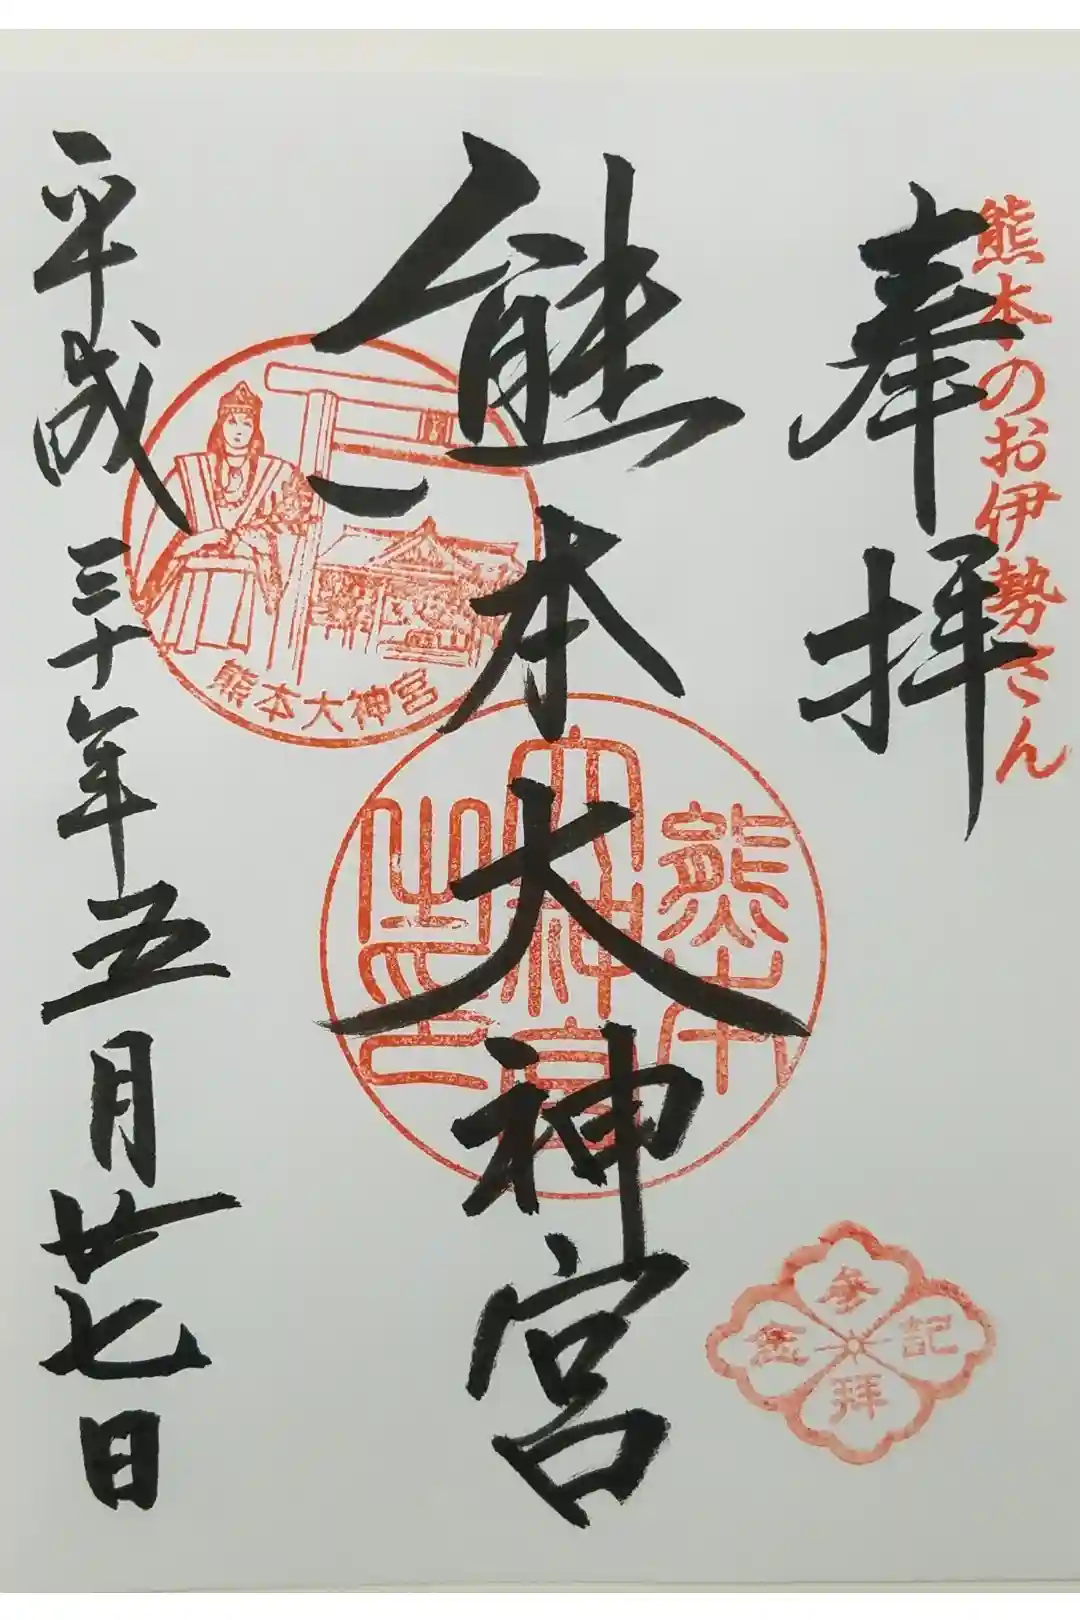 熊本のお伊勢さん
奉拝
熊本大神宮
平成三十年五月廿七日
熊本大神宮
熊本
大神宮
之印
参拝
記念